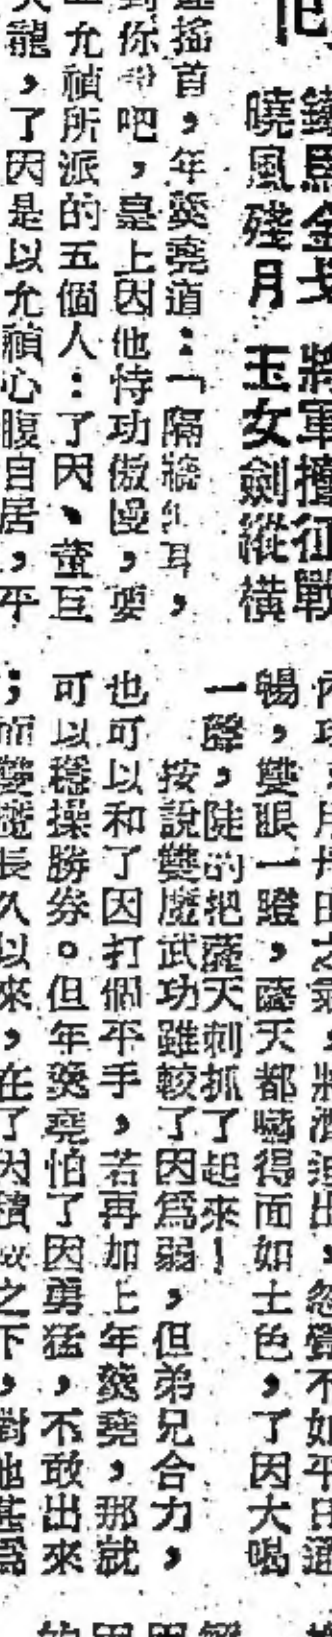 鐵馬金戈　將軍擅征戰
曉風殘月　玉女劍縱橫
搖首，年羹堯道：「隔牆有耳，
你吧，皇上因他恃功傲慢，要
允禎所派的五個人：了因、董巨
龍，了因是以允禎心腹自居，平
暢，雙眼一瞪，薩天都嚇得面如土色，了因大喝
一聲，陡的把薩天刺抓了起來！
按說雙魔武功雖較了因爲弱，但弟兄合力，
也可以和了因打個平手，若再加上年羹堯，那就
可以穩操勝券。但年羹堯怕了因勇猛，不敢出來
；而雙魔長久以來，在了因積威之下，對他甚爲